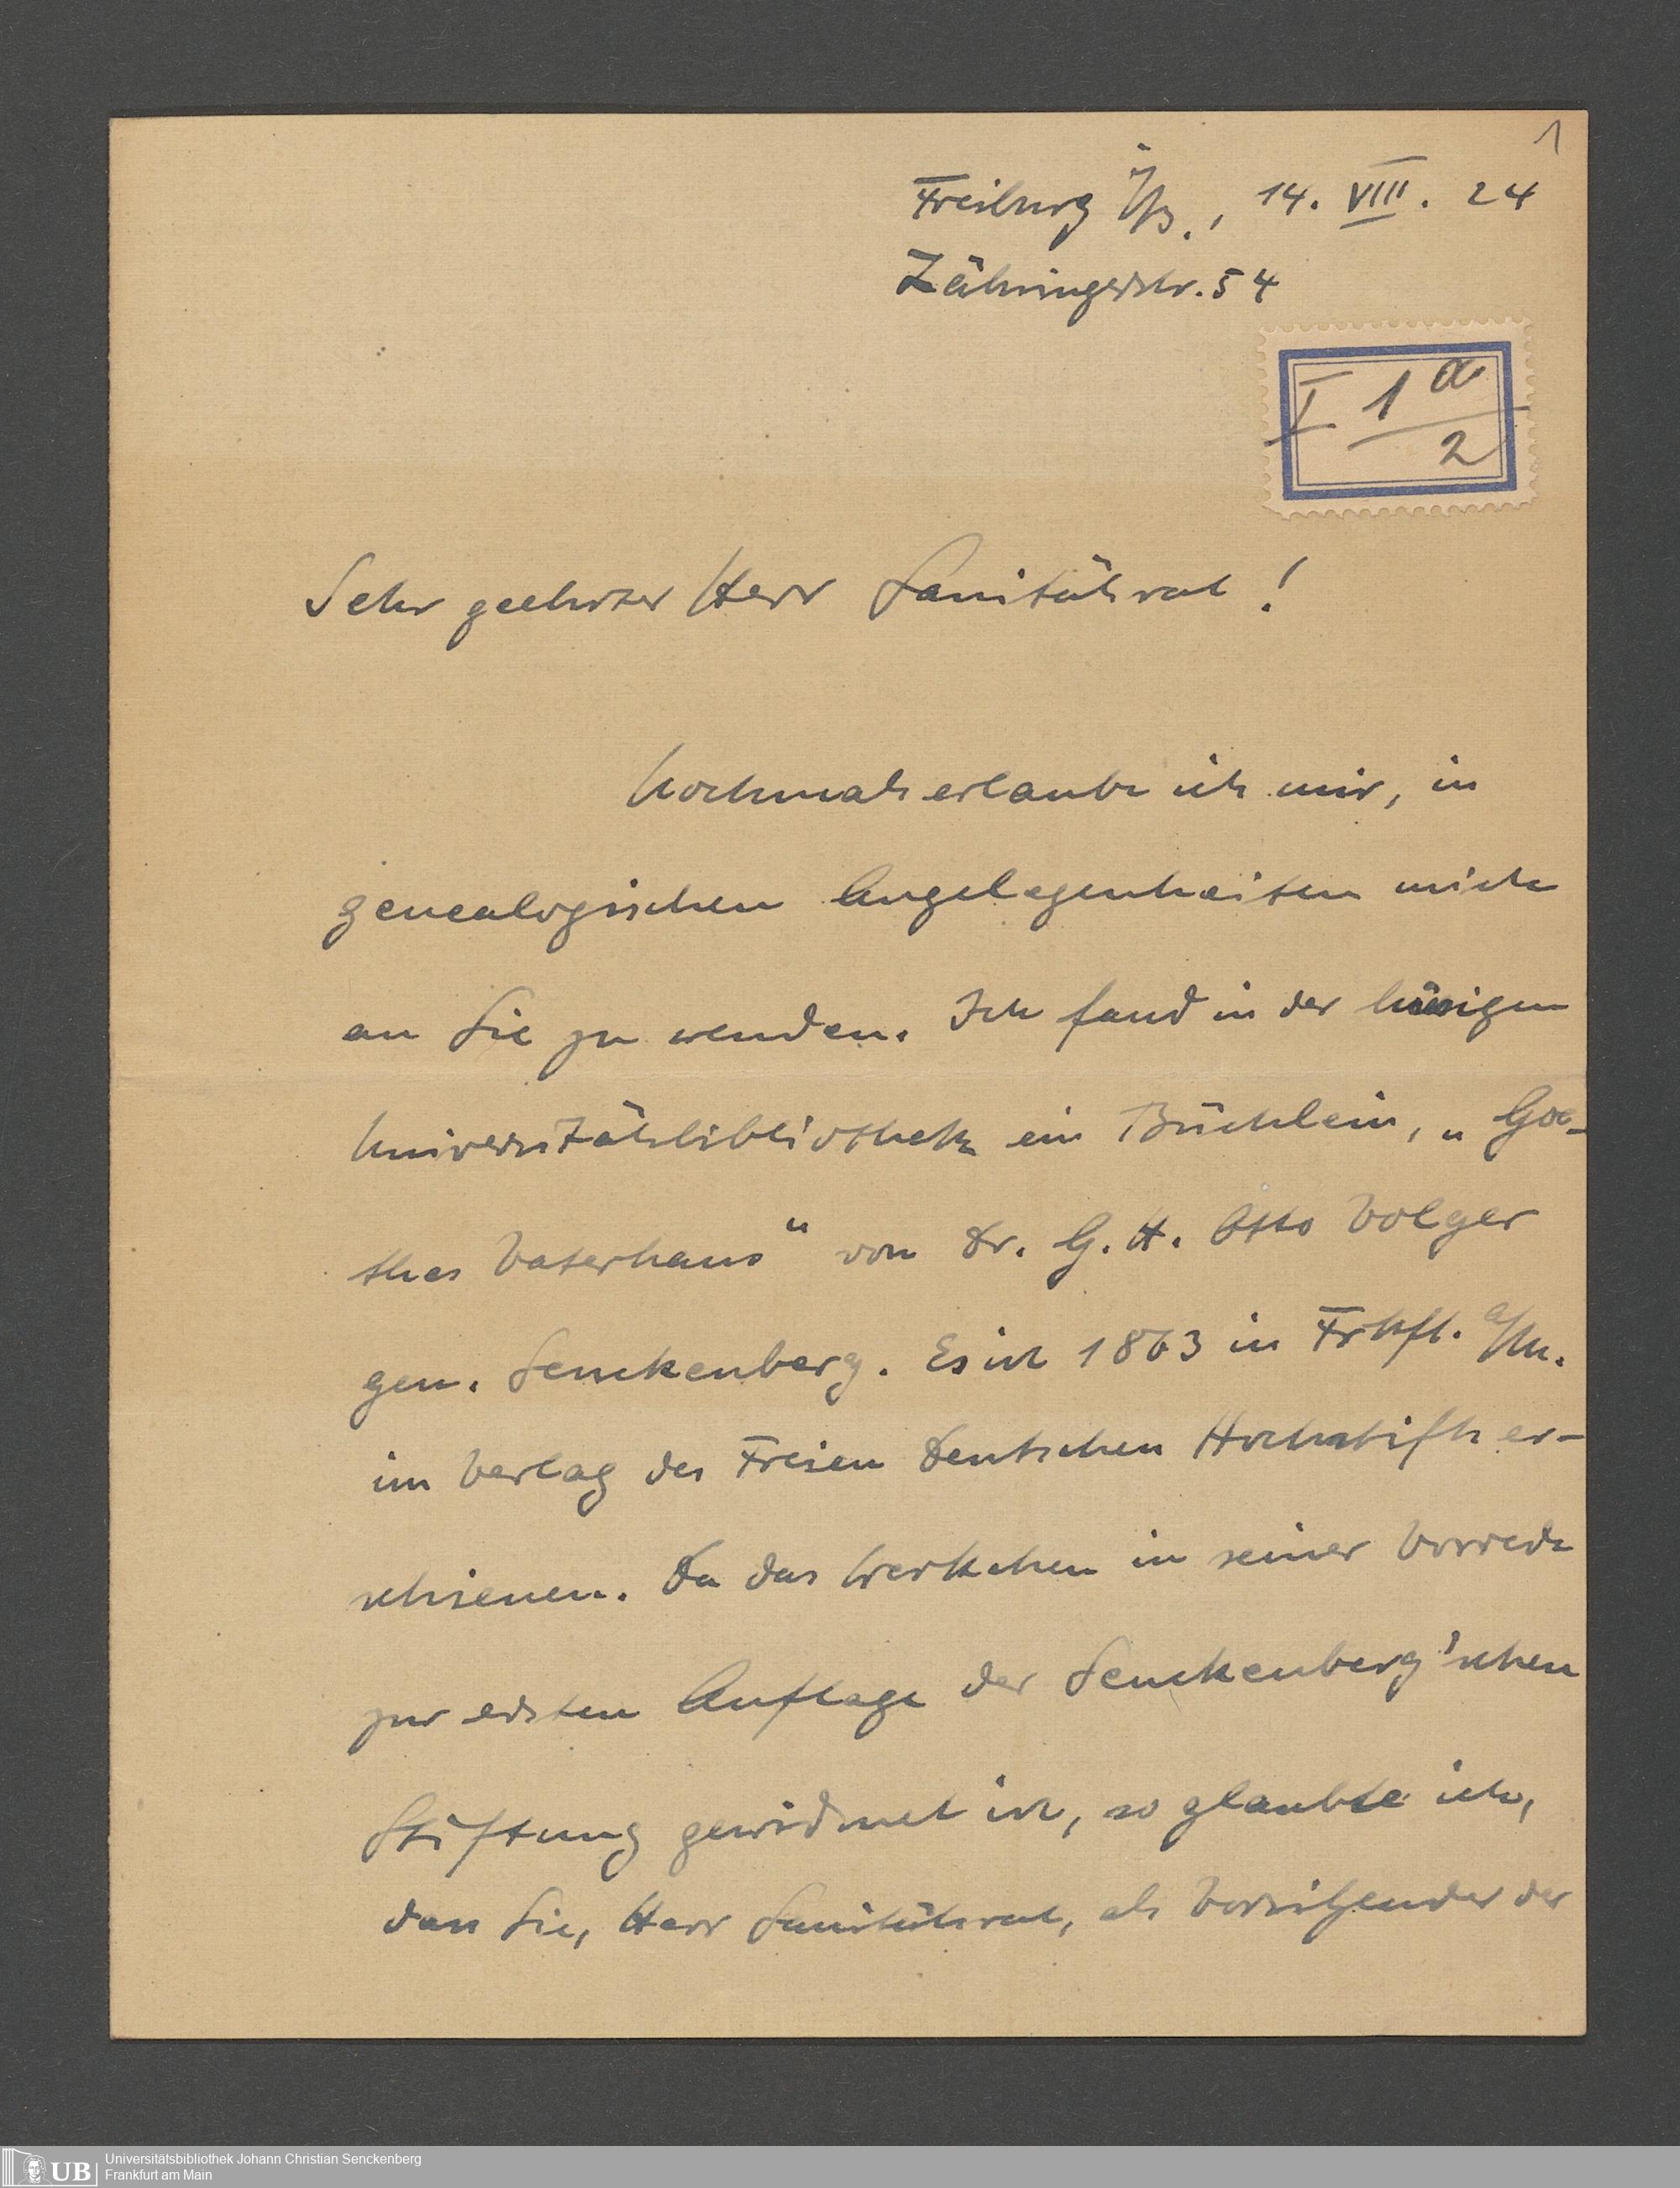 1
Freiburg i/B., 14. VIII. 24
Zähringerstr. 54
I 1a
2
Sehr geehrter Herr Sanitätsrat!
Nochmals erlaube ich mir, in
genealogischen Angelegenheiten mich
an Sie zu wenden. Ich fand in der hiesigen
Universitätsbibliothek ein Büchlein, „Goe-
thes Vaterhaus“ von Dr. G. H. Otto Volger
gen. Senckenberg. Es ist 1863 in Frkft. a/M.
im Verlag des Freien Deutschen Hochstifts er-
schienen. Da das Werkchen in seiner Vorrede
zur ersten Auflage der Senckenberg'schen
Stiftung gewidmet ist, so glaubte ich,
dass Sie, Herr Sanitätsrat, als Vorsitzender der
UB
Universitätsbibliothek Johann Christian Senckenberg
Frankfurt am Main